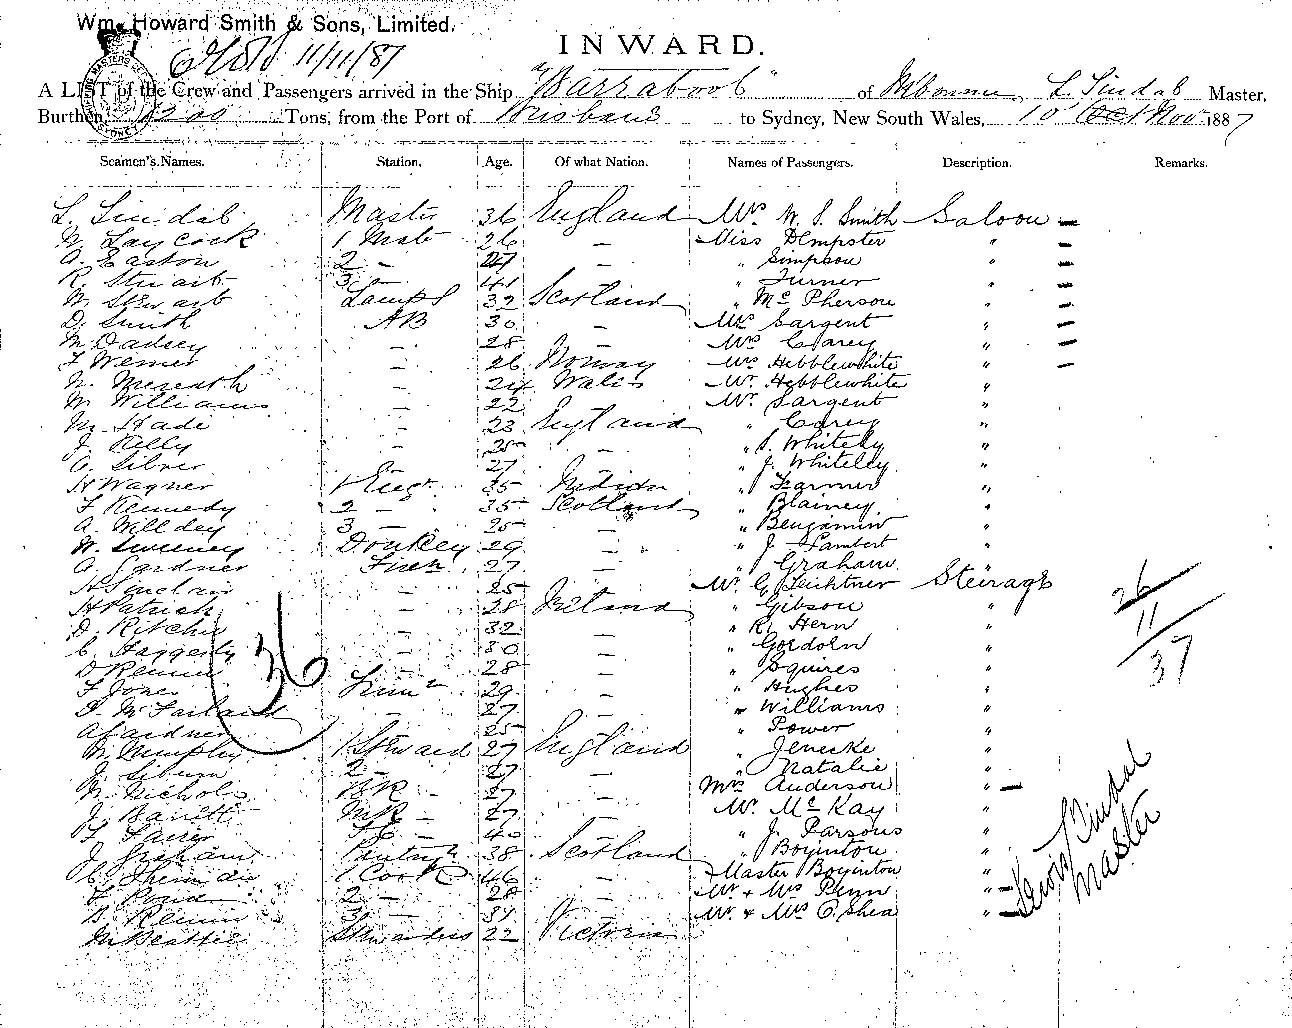 Wm. Howard Smith & Sons, Limited.
11/11/87
INWARD.
A LIST of the Crew and Passengers arrived in the Ship "Barrabool" of Melbourne, L. Lindal Master,
Burthen, 1200 Tons, from the Port of Brisbane to Sydney, New South Wales, 10 Oct Nov 1887
Seamen's Names. Station. Age. Of what Nation. Names of Passengers. Description. Remarks.
L. Lindal Master 36 England Mrs W. S. Smith Saloon —
W. Laycock 1 Mate 26 — Miss Dempster " —
A. Easton 2 — 27 — " Simpson " —
R. Stuart 3 — 41 — " Turner " —
W. Stewart Lamps 32 Scotland " McPherson " —
D. Smith AB 30 — Mrs Sargent " —
M. Dadsey — 28 — Mrs Carey " —
F Werner — 26 Norway Mrs Hebblewhite " —
W. Meredith — 24 Wales Mr. Hebblewhite "
W. Williams — 22 Mr. Sargent "
M. Hade — 23 England " Carey "
J. Kelly — 25 — " S. Whiteley "
G. Silver — 27 — " J. Whiteley "
H Wagner 1 Engr 35 " Farmer "
F Kennedy 2 — 35 Scotland " Blainey "
A. Willdey 3 — 25 — " Benjamin "
W. Sweeney Donkey 29 — " J. Lambert "
A. Gardner Firem 27 — " Graham "
H Sinclair — 25 — Mr. G. Leichtner Steerage
H Patrick — 28 Ireland " Gibson "
D. Ritchie — 32 — " R. Hern "
C. Haggerty — 30 — " Gordoln "
D — 28 — " Squires "
F Jones Trimr 29 — " Hughes "
— 27 — " Williams "
A Gardner — 25 — " Power "
M. Murphy 1 Steward 27 England " Jenecke "
J. 2 — 27 — " Natalie "
W. Nichols BR — 27 — Mrs Anderson " —
J. Barrett MR — 27 — Mr. McKay "
F FC — 40 — " J. Parsons "
J Graham Pantry 38 Scotland " Boyinton "
1 Cook 46 — Master Boyinton "
2 — 28 — Mr. & Mrs Penn " —
3 — 31 — Mr. & Mrs O'Shea " —
M Beattie Stewardess 22 Victoria
36
26
11
37
Lewis Lindal
Master